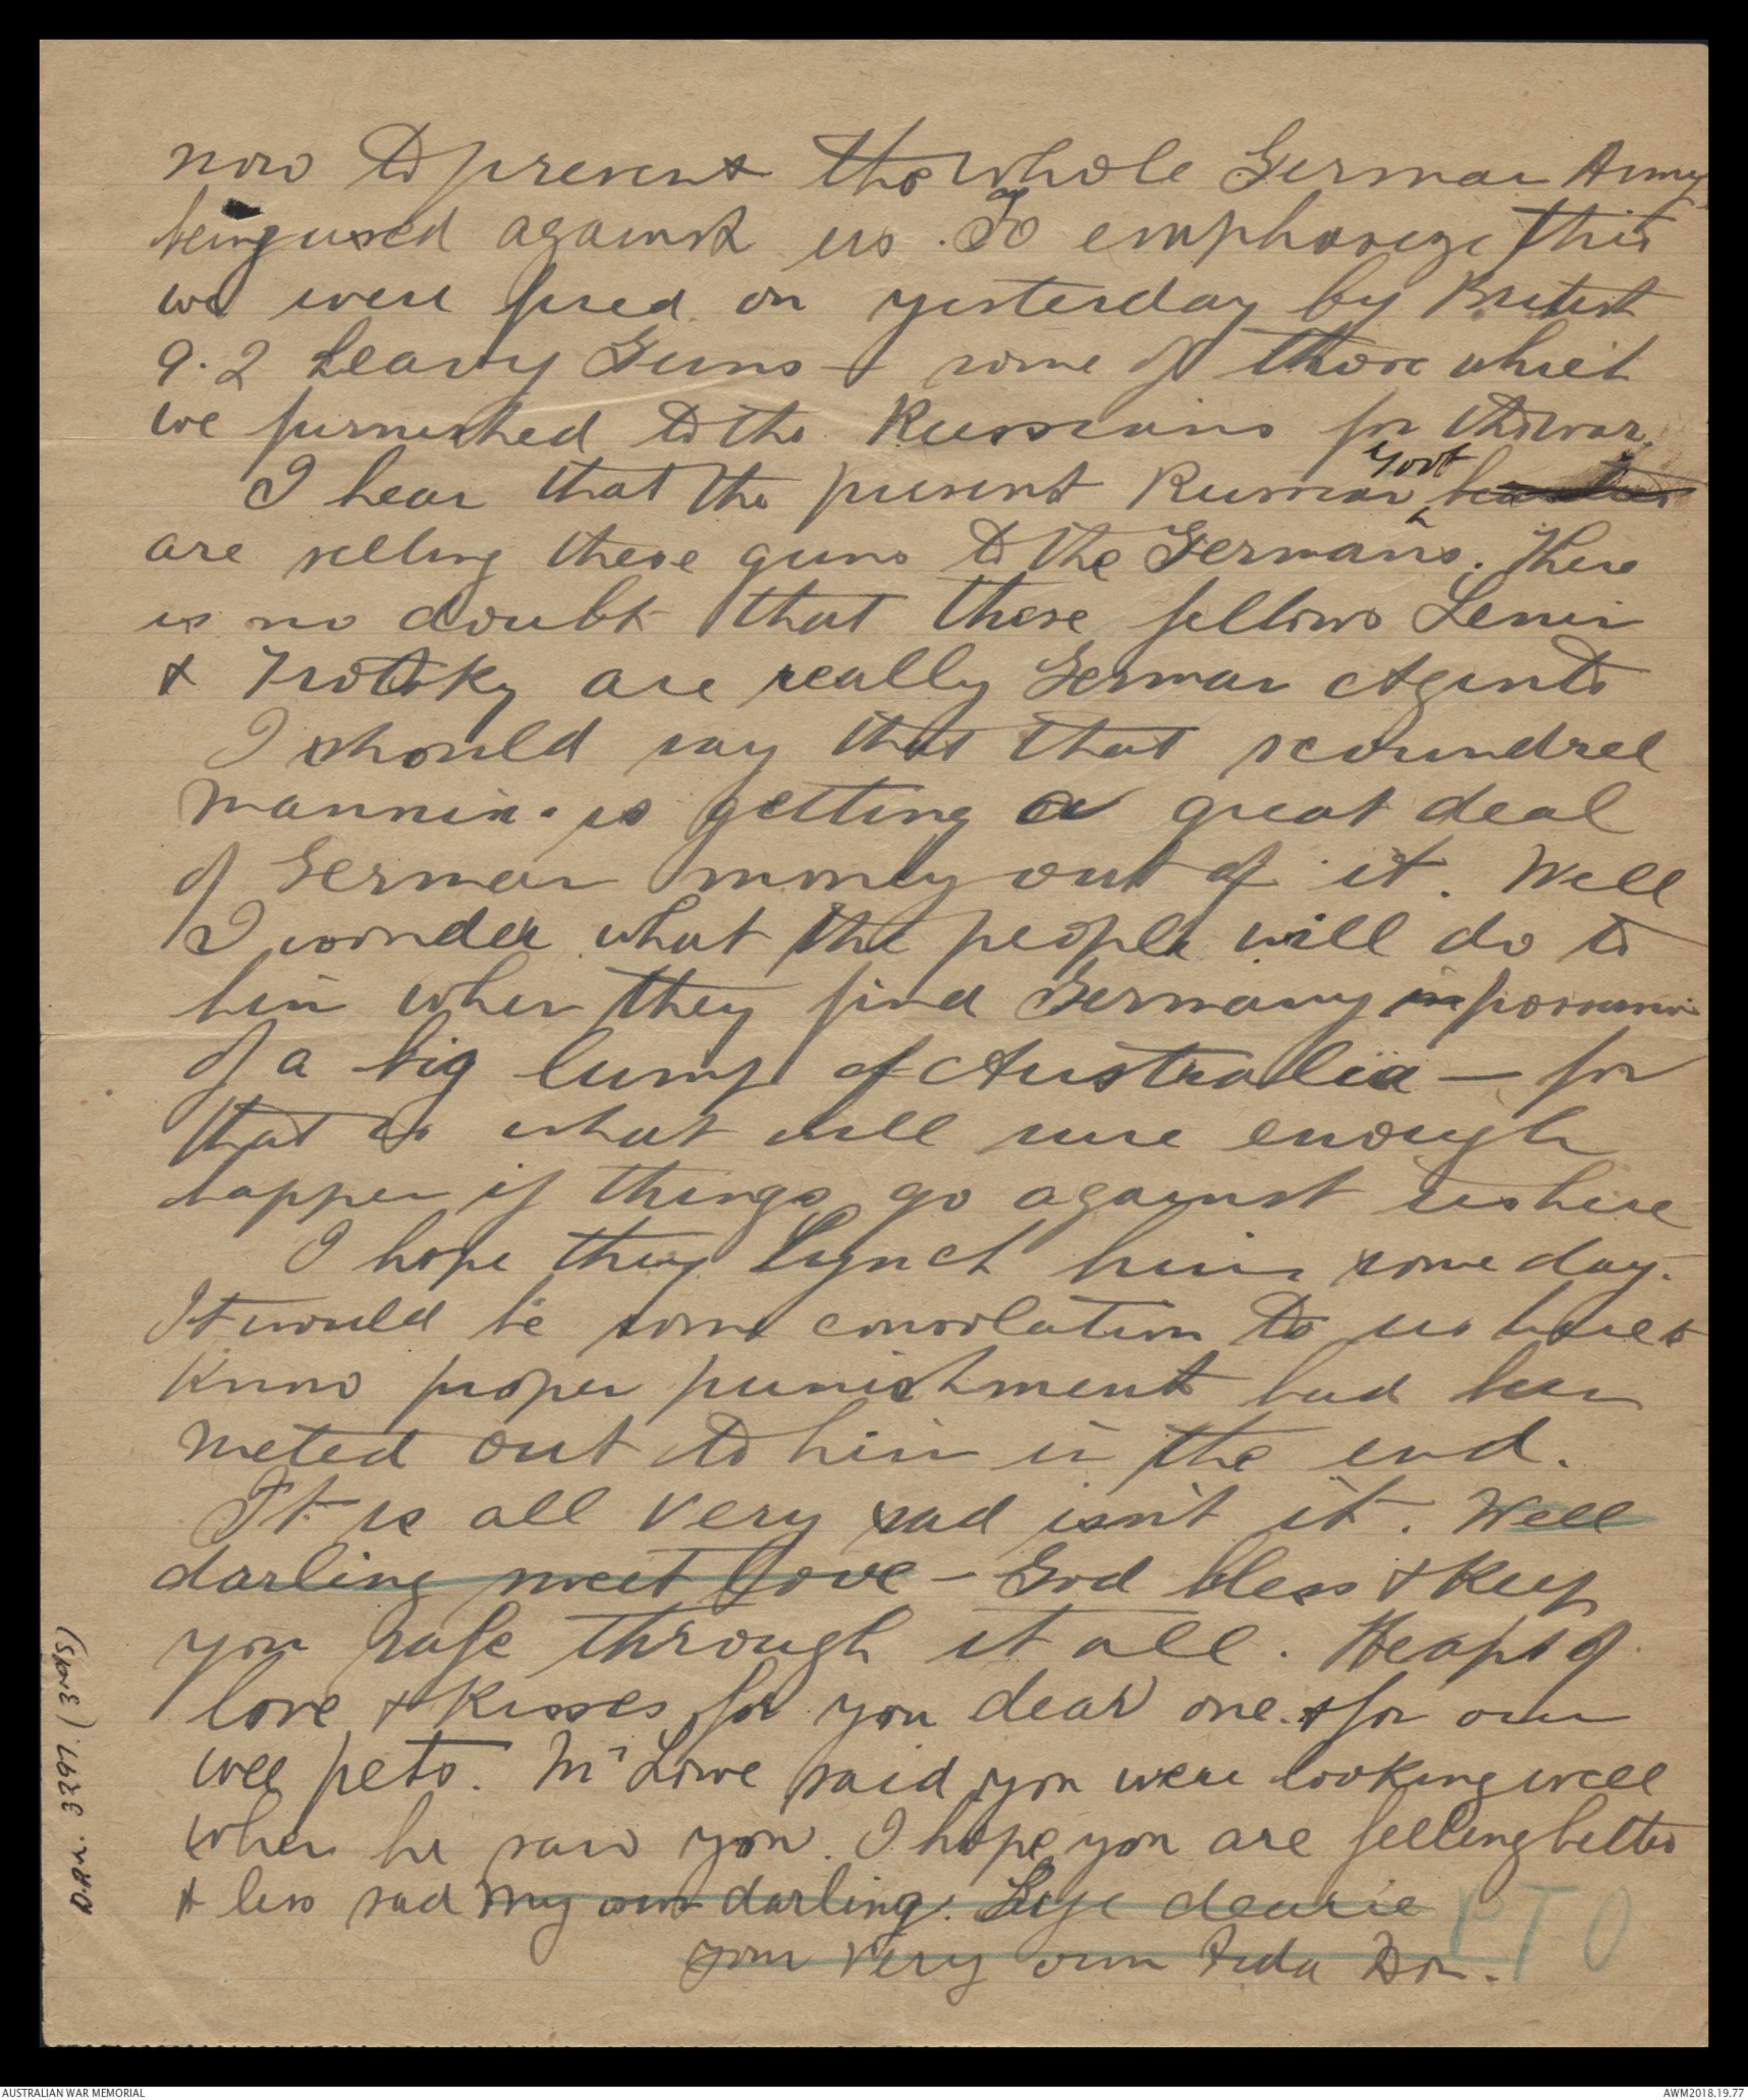 now to prevent the whole German Army
being used against us. To emphasize this
we were fired on yesterday by British
9.2 Heavy Guns - some of those which
we furnished to the Russians for the war.
I hear that the present Russian Govt
are selling these guns to the Germans. There
is no doubt that these fellows Lenin
& Trotsky are really German Agents
I should say that that scoundrel
Mannix is getting a great deal
of German money out of it. Well
I wonder what the people will do to
him when they find Germany in possession
of a big lump of Australia - for
that is what will sure enough
happen if things go against us here
I hope they Lynch him some day.
It would be some consolation to us here to
know proper punishment had been
meted out to him in the end.
It is all very sad isn't it. Well
darling sweet love - God bless & keep
you safe through it all. Heaps of
love & kisses for you dear one. & for our
wee pets. Mr Lowe said you were looking well
when he saw you. I hope you are feeling better
& less sad my own darling. Bye dearie
your very own
PTO
DRL. 3297. (3rd S)
AUSTRALIAN WAR MEMORIAL
AWM2018.19.77